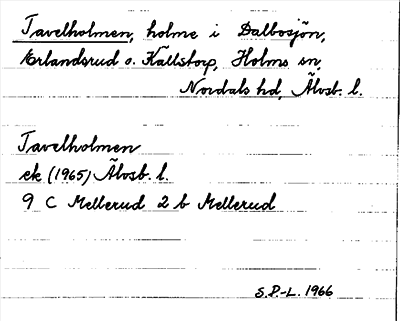 Tavelholmen, holme i Dalbosjön,
Erlandsrud o. Källstorp, Holms sn,
Nordals hd, Älvsb. l.
Tavelholmen
ek (1965) Älvsb. l.
9 C Mellerud 2 b Mellerud
S.P.-L. 1966